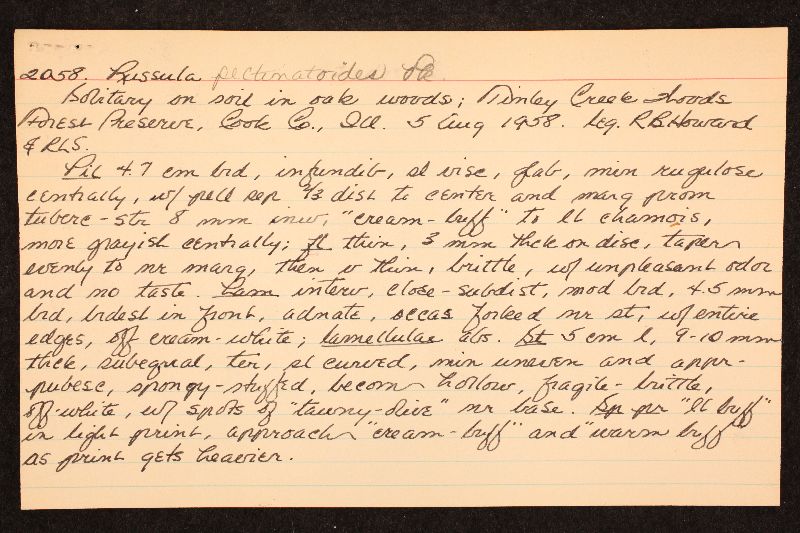 2058. Russula pectinatoides Pk.
Solitary on soil in oak woods; Tinley Creek Woods
Forest Preserve, Cook Co., Ill. 5 Aug 1958. Leg. RBHoward
& RLS.
Pil 4.7 cm brd, infundib, sl visc, glab, min rugulose
centrally, w/ pell sep 2/3 dist to center and marg prom
tuberc-str 8 mm inw, "cream-buff" to lt chamois,
more grayish centrally; fl thin, 3 mm thck on disc, tapern
evenly to nr marg, then v thin, brittle, w/ unpleasant odor
and no taste. Lam interv, close-subdist, mod brd, 4.5 mm
brd, brdest in front, adnate, occas forked nr st, w/ entire
edges, off cream-white; lamellulae abs. St 5 cm l, 9-10 mm
thck, subequal, ter, sl curved, min uneven and appr-
pubesc, spongy-stuffed, becomn hollow, fragile-brittle,
off-white, w/ spots of "tawny-olive" nr base. Sp pr "lt buff"
in light print, approachn "cream-buff" and "warm buff"
as print gets heavier.